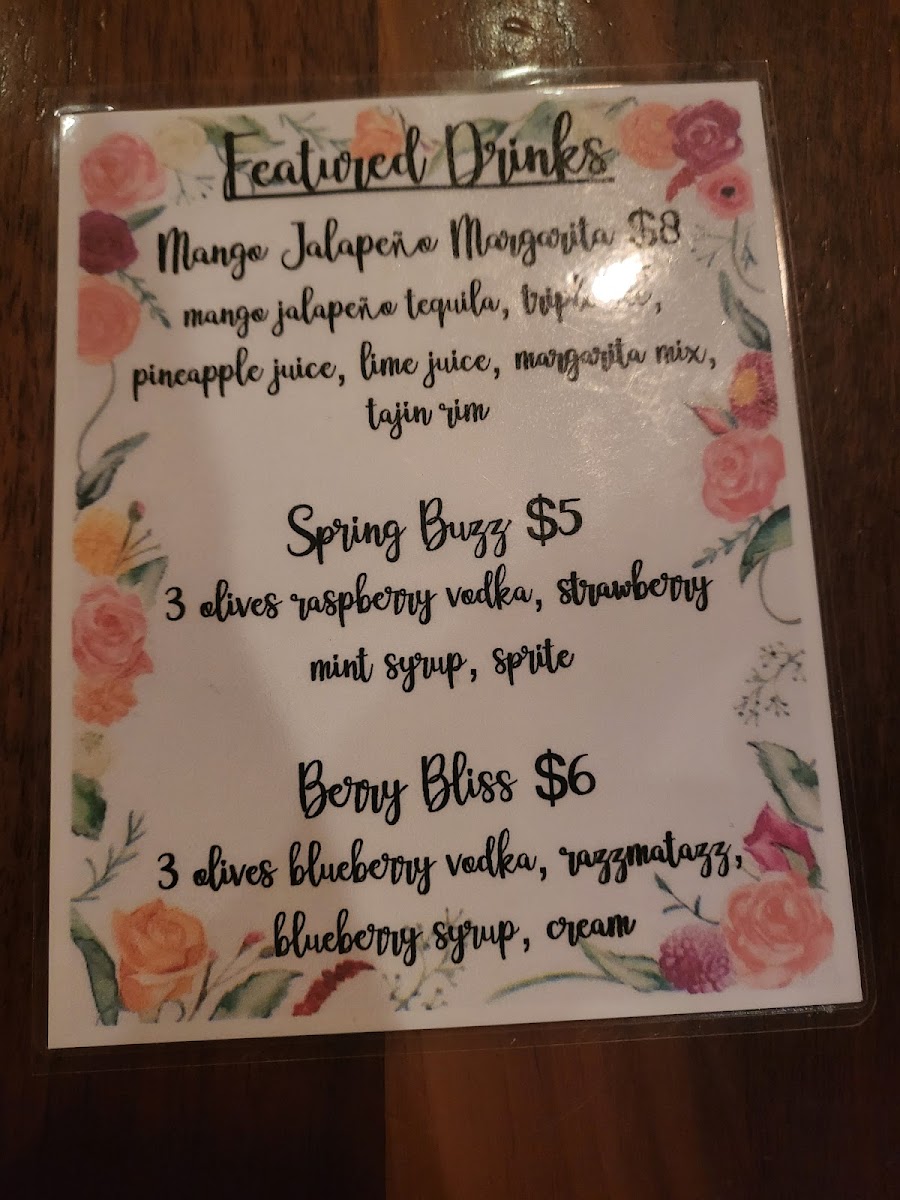 Featured Drinks
Mango Jalapeño Margarita $8
mango jalapeño tequila,
pineapple juice, lime juice, margarita mix,
tajin rim
Spring Buzz $5
3 olives raspberry vodka, strawberry
mint syrup, sprite
Berry Bliss $6
3 olives blueberry vodka, razzmatazz,
blueberry syrup, cream